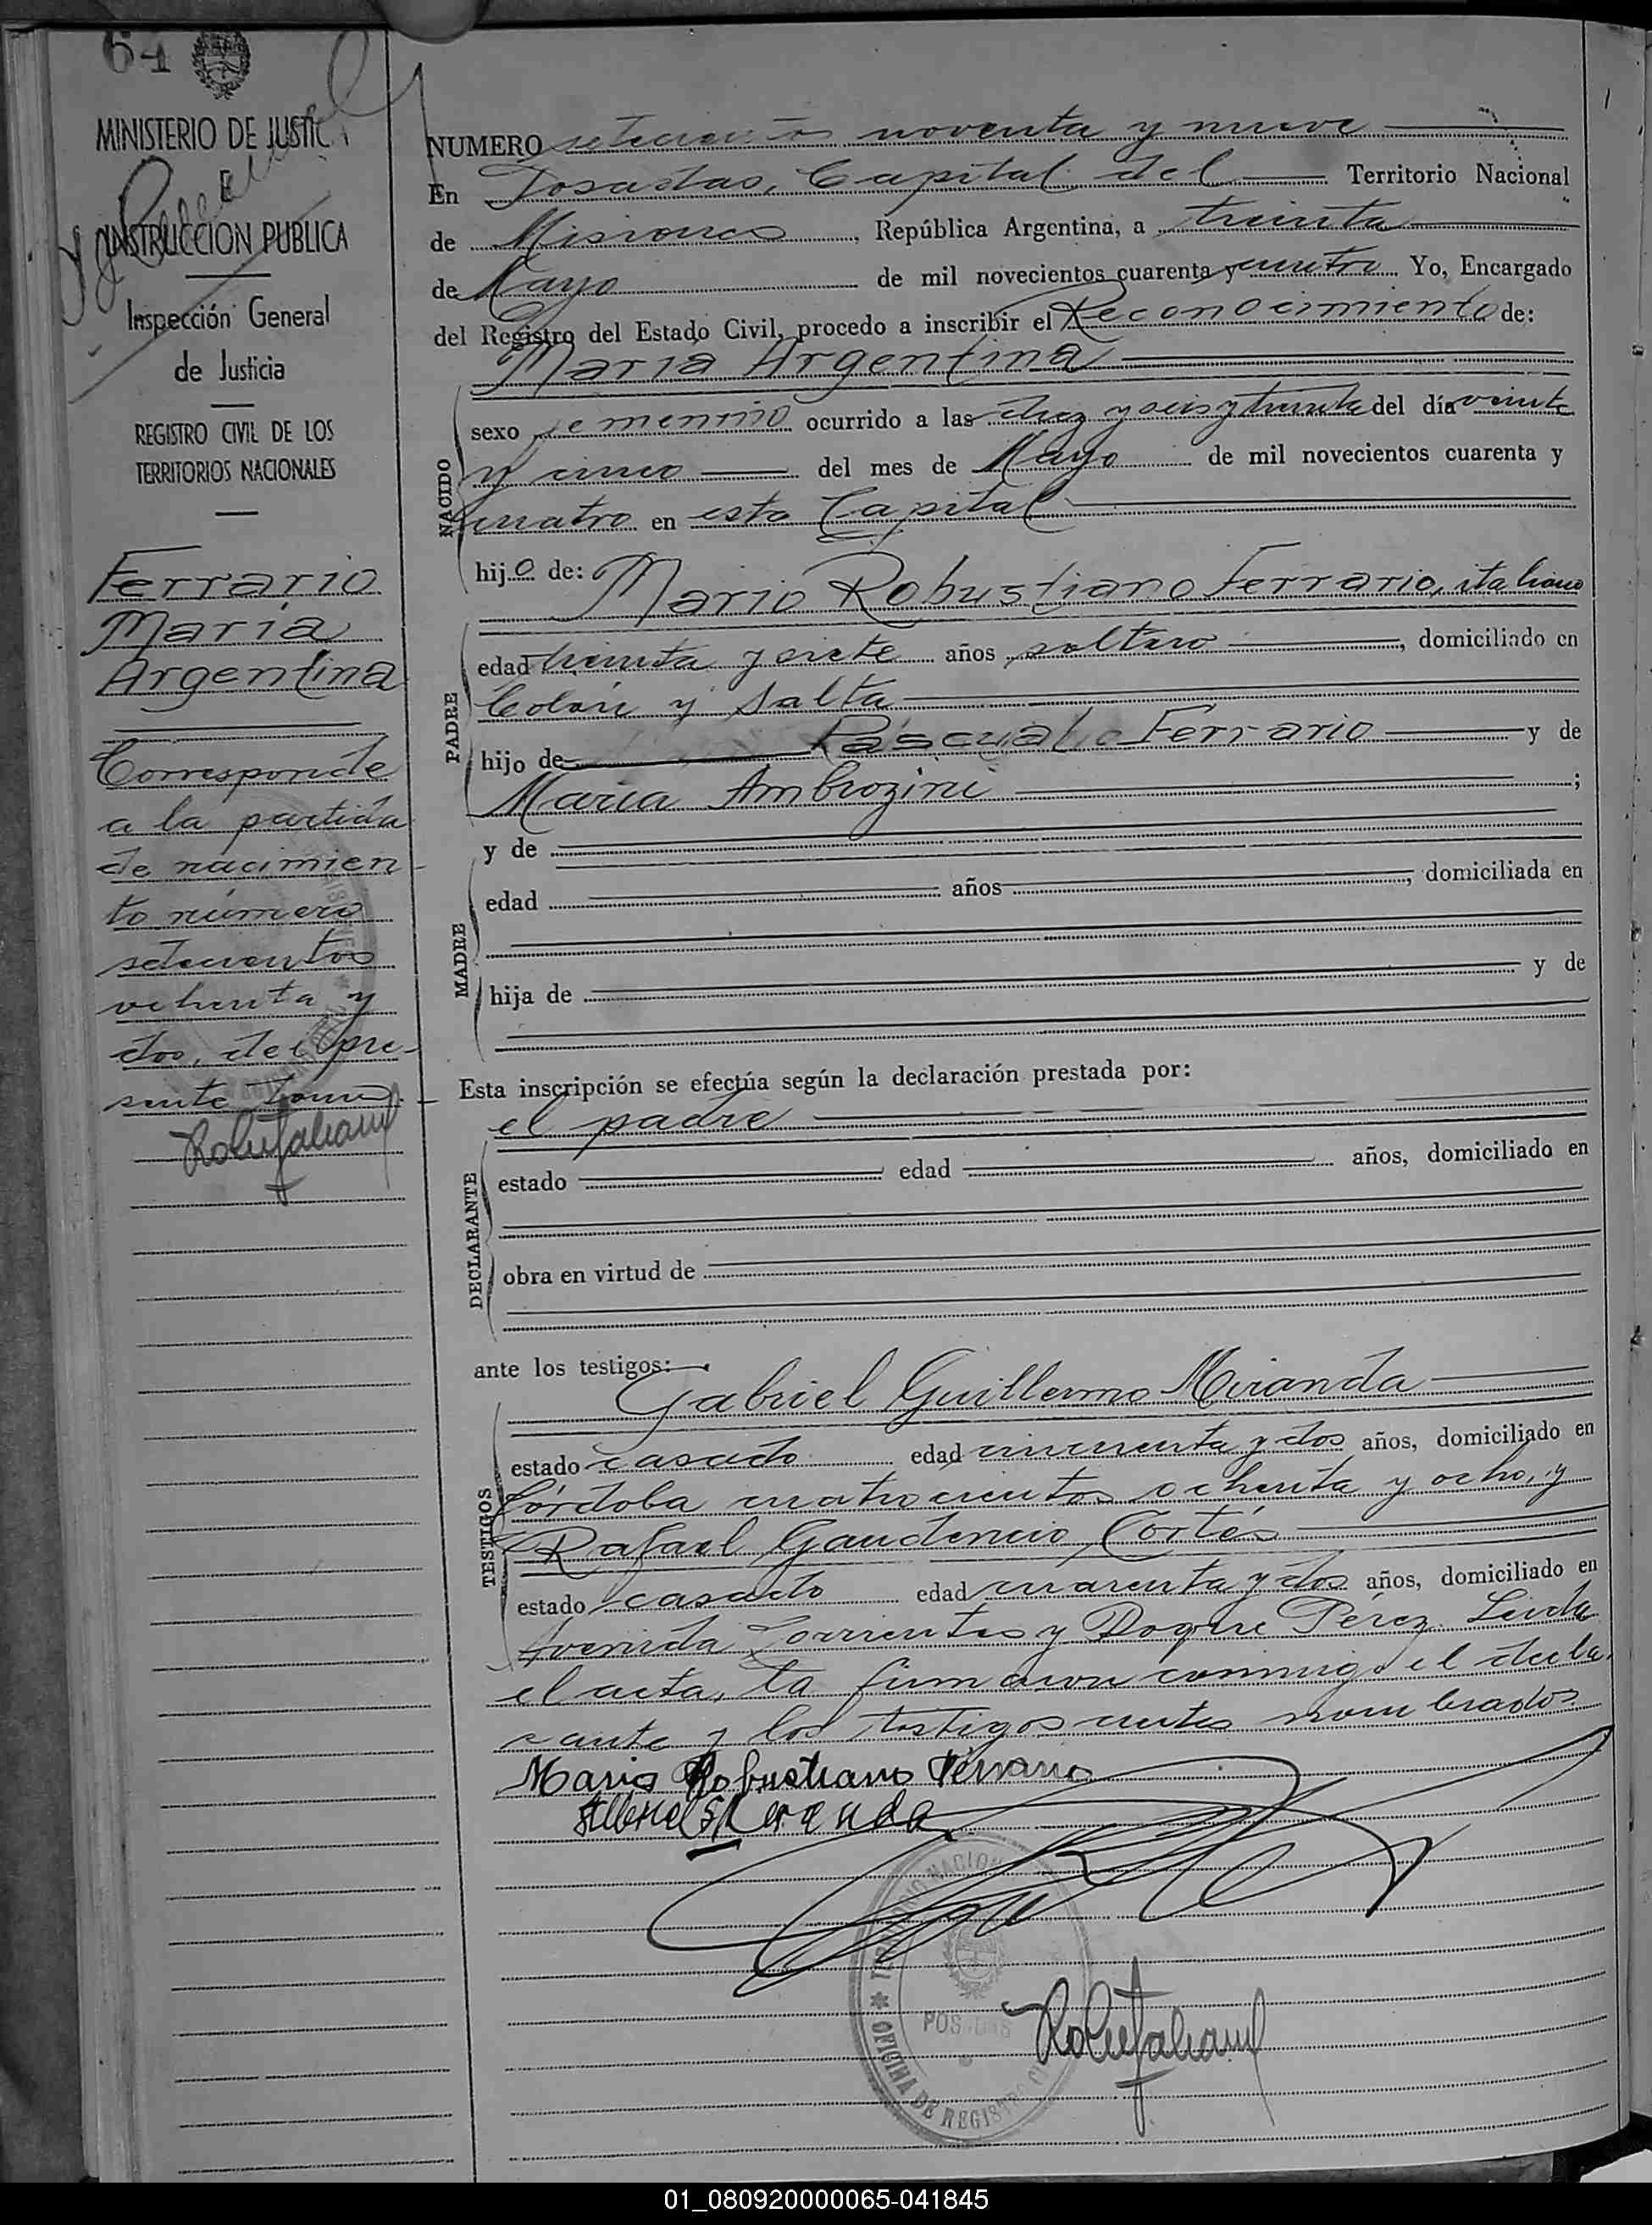 64
MINISTERIO DE JUSTICI
E
INSTRUCCION PUBLICA
Inspección General
de Justicia
REGISTRO CIVIL DE LOS
TERRITORIOS NACIONALES
Ferrario
María
Argentina
Corresponde
a la partida
de nacimien
to número
setecientos
ochenta y
dos, del pre-
sente tomo.
NUMERO setecientos noventa y nueve
En Posadas, Capital del Territorio Nacional
de Misiones, República Argentina, a treinta
de Mayo de mil novecientos cuarenta y cuatro Yo, Encargado
del Registro del Estado Civil, procedo a inscribir el Reconocimiento de:
María Argentina
NACIDO
sexo femenino ocurrido a las diez y seis y treinta del día veinte
y cinco del mes de Mayo de mil novecientos cuarenta y
cuatro en esta Capital
hijo de: Mario Robustiano Ferrario, italiano
PADRE
edad treinta y siete años soltero, domiciliado en
Colón y Salta
hijo de Pascual Ferrario y de
María Ambrozini;
y de
MADRE
edad años, domiciliada en
hija de y de
Esta inscripción se efectúa según la declaración prestada por:
el padre
DECLARANTE
estado edad años, domiciliado en
obra en virtud de
ante los testigos:
Gabriel Guillermo Miranda
TESTIGOS
estado casado edad cincuenta y dos años, domiciliado en
Córdoba cuatrocientos ochenta y ocho, y
Rafael Gaudencio Cortés
estado casado edad cuarenta y dos años, domiciliado en
Avenida Corrientes y Roque Pérez. Leida
el acta, la firmaron conmigo el decla
rante y los testigos antes nombrados.
Mario Robustiano Ferrario
OFICINA DE REGISTRO
POSADAS
01_080920000065-041845